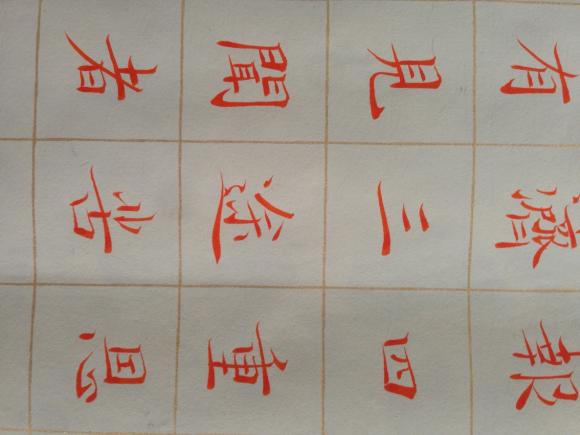 報四重恩
濟三途苦
有見聞者